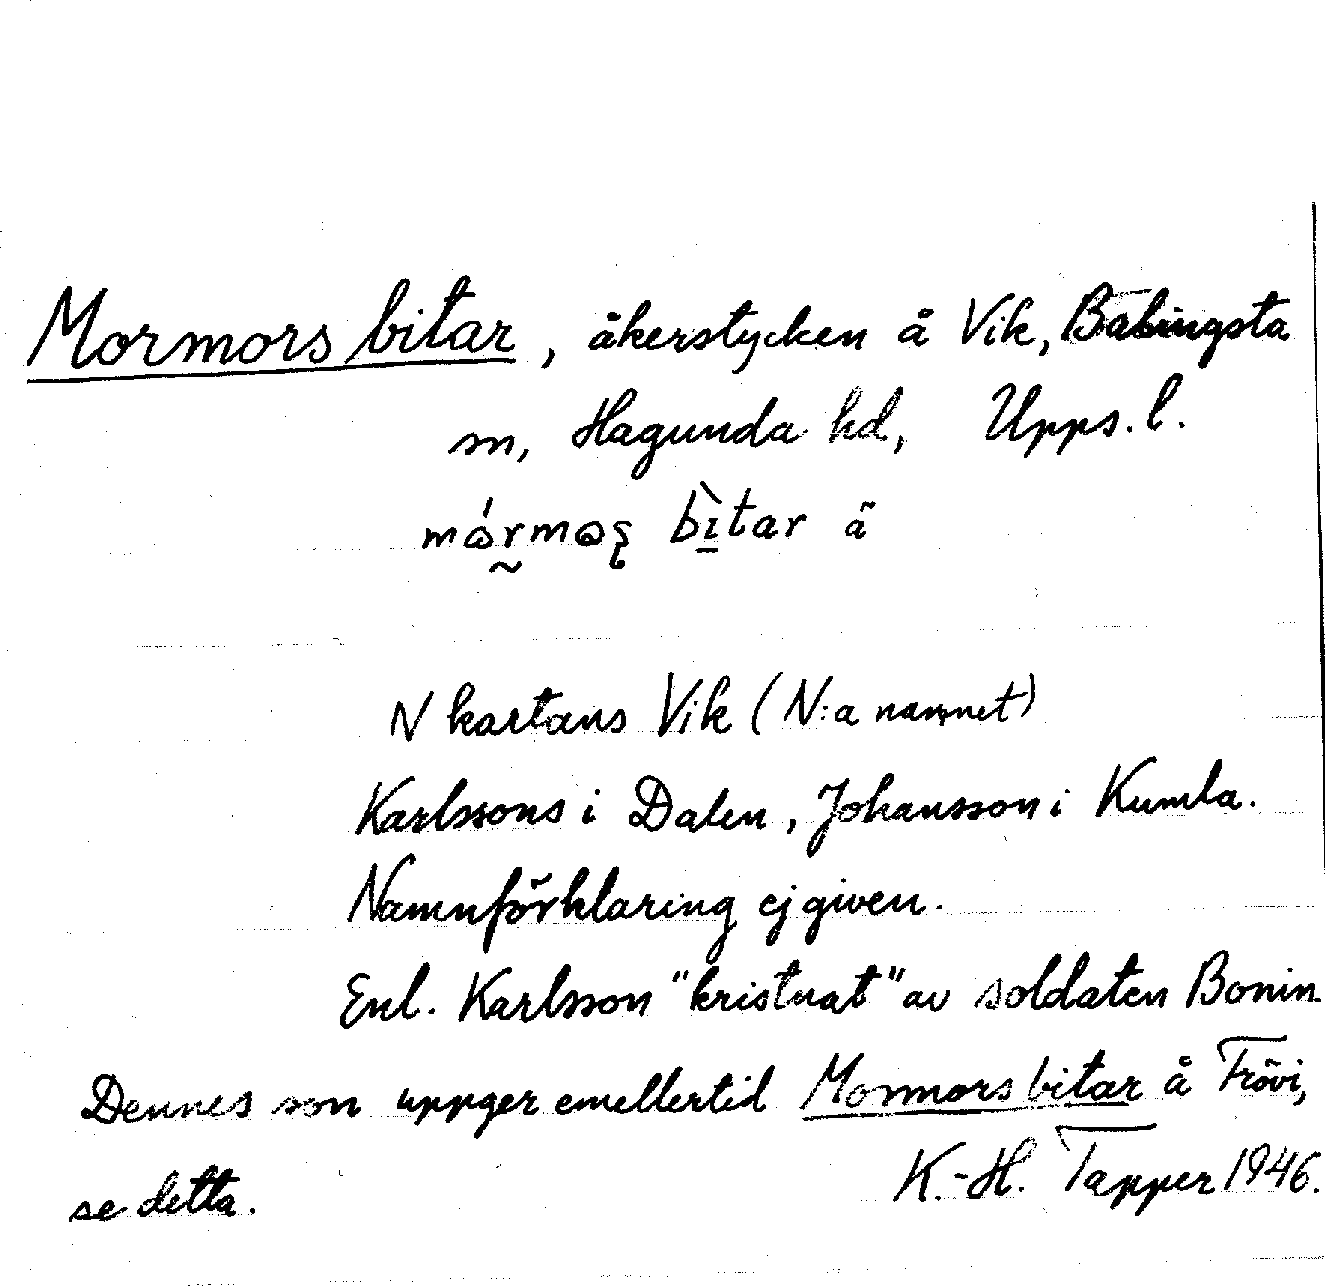 Mormors bitar, åkerstycken å Vik, Balingsta
sn, Hagunda hd, Upps. l.
bitar å
N kartans Vik (N:a namnet)
Karlssons i Dalen, Johansson i Kumla.
Namnförklaring ej given.
Enl. Karlsson "kristnat" av soldaten Bonin
Dennes son uppger emellertid Mormors bitar å Frövi,
se detta. K.-H. Tapper 1946.